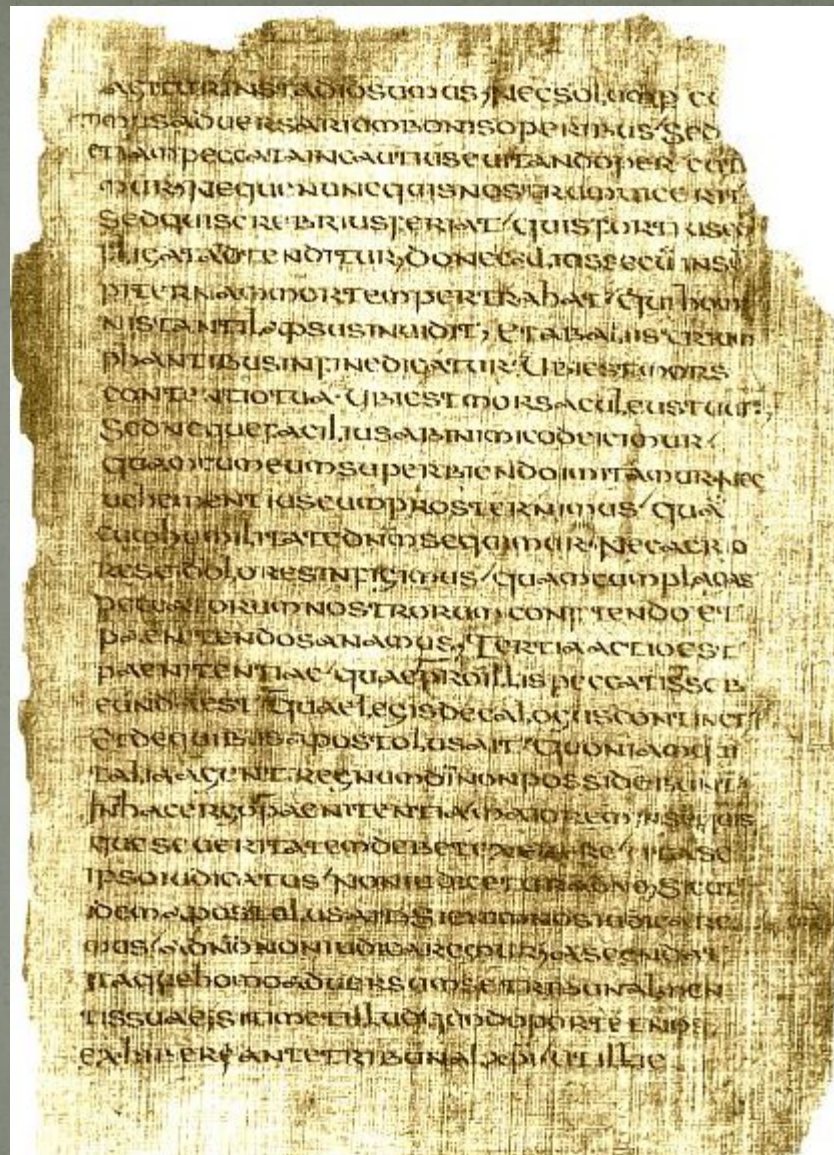 AGITURINSTADIOSUMUS,NECSOLUMP CU
TIMUSADUERSARIUMBONISOPERIBUS/SED
ETIAMPECCATAINCAUTIUSEUITANDOPERCUTI
MUR,NEQUENUNCQUISNOSTRUMUICERIT
SEDQUISCREBRIUSFERIAT/QUISFORTIUSCO
FLIGATADTENDITUR,DONECALIOSSECŪINSE
PITERNAMMORTEMPERTRAHAT/QUIHOMI
NISTANTILAPSUSINUIDIT,ETABALIISTRIUM
PHANTIBUSINFINEDICATUR·UBIESTMORS
CONTENTIOTUA·UBIESTMORSACULEUSTUUS,
SEDNEQUEFACILIUSABINIMICODEICIMUR/
QUAMCUMEUMSUPERBIENDOIMITAMUR·NEC
UEHEMENTIUSEUMPROSTERNIMUS/QUĀ
CUMHUMILITATEDNMSEQUIMUR·NECACRIO
RESEIDOLORESINFIGIMUS/QUAMCUMPLAGAS
PECCATORUMNOSTRORUMCONFITENDOET
PAENITENDOSANAMUS,TERTIAACTIOEST
PAENITENTIAE/QUAEPROILLISPECCATISSUB
EUNDAEST/QUAELEGISDECALOGUSCONTINET/
ETDEQUIBUSAPOSTOLUSAIT/QUONIAMQUI
TALIAAGUNT·REGNUMDĪNONPOSSIDEBUNT·
INHACERGOPAENITENTIAMAIOREMINSEQUIS
QUESEUERITATEMDEBETEXERCERE/UTASE
IPSOIUDICATUS/NONIUDICETURADNO,SICUT
IDEMAPOSTOLUSAITSIENIMNOSIUDICARE
MUS/ADNONONIUDICAREMUR,ASCENDAT
ITAQUEHOMOADUERSUMSETRIBUNALMEN
TISSUAE,SITIMETILLUDQUODOPORTETNOS
EXHIBEREANTETRIBUNALXPI/UTILLIC